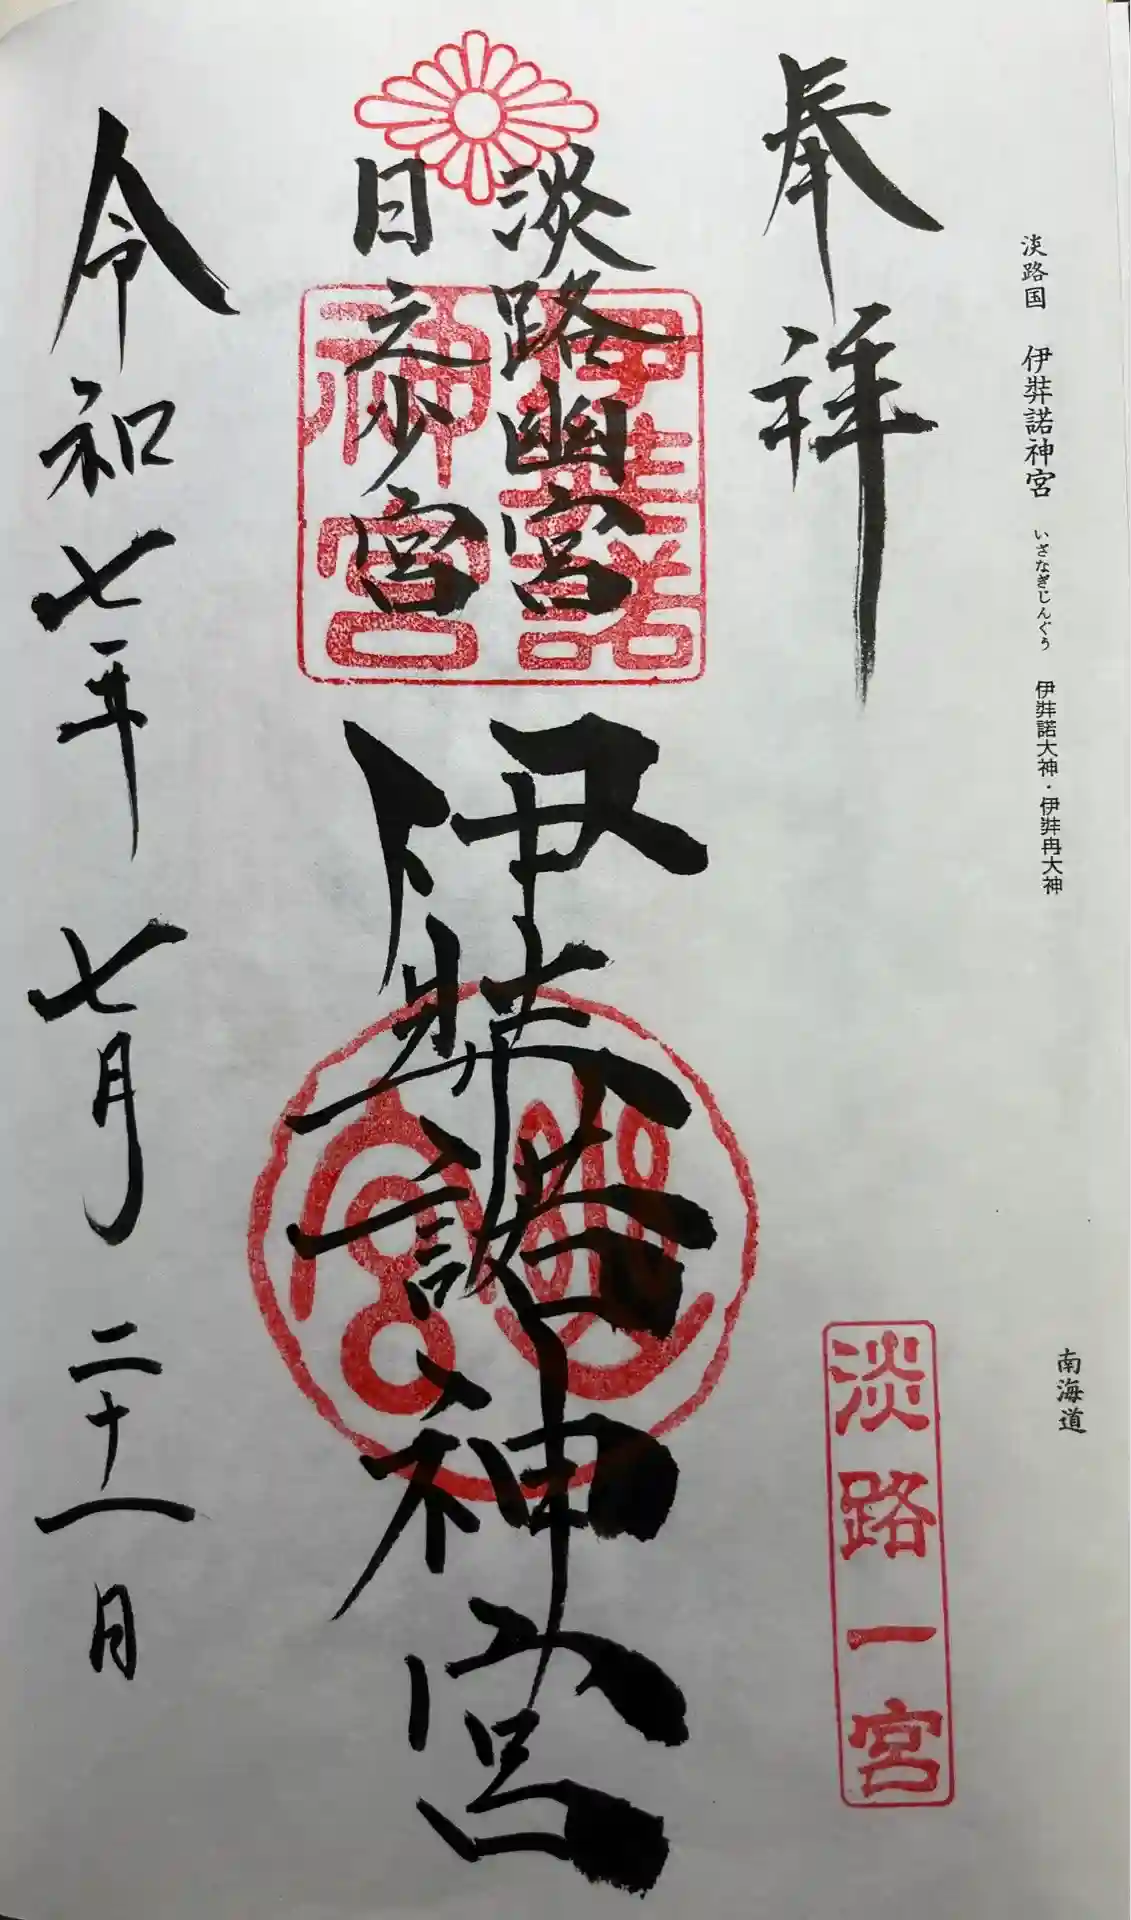 淡路国 伊弉諾神宮 いざなぎじんぐう 伊弉諾大神・伊弉冉大神
南海道
奉拝
淡路一宮
淡路幽宮
日之少宮
伊弉諾
神宮
伊弉諾神宮
令和七年 七月 二十一日